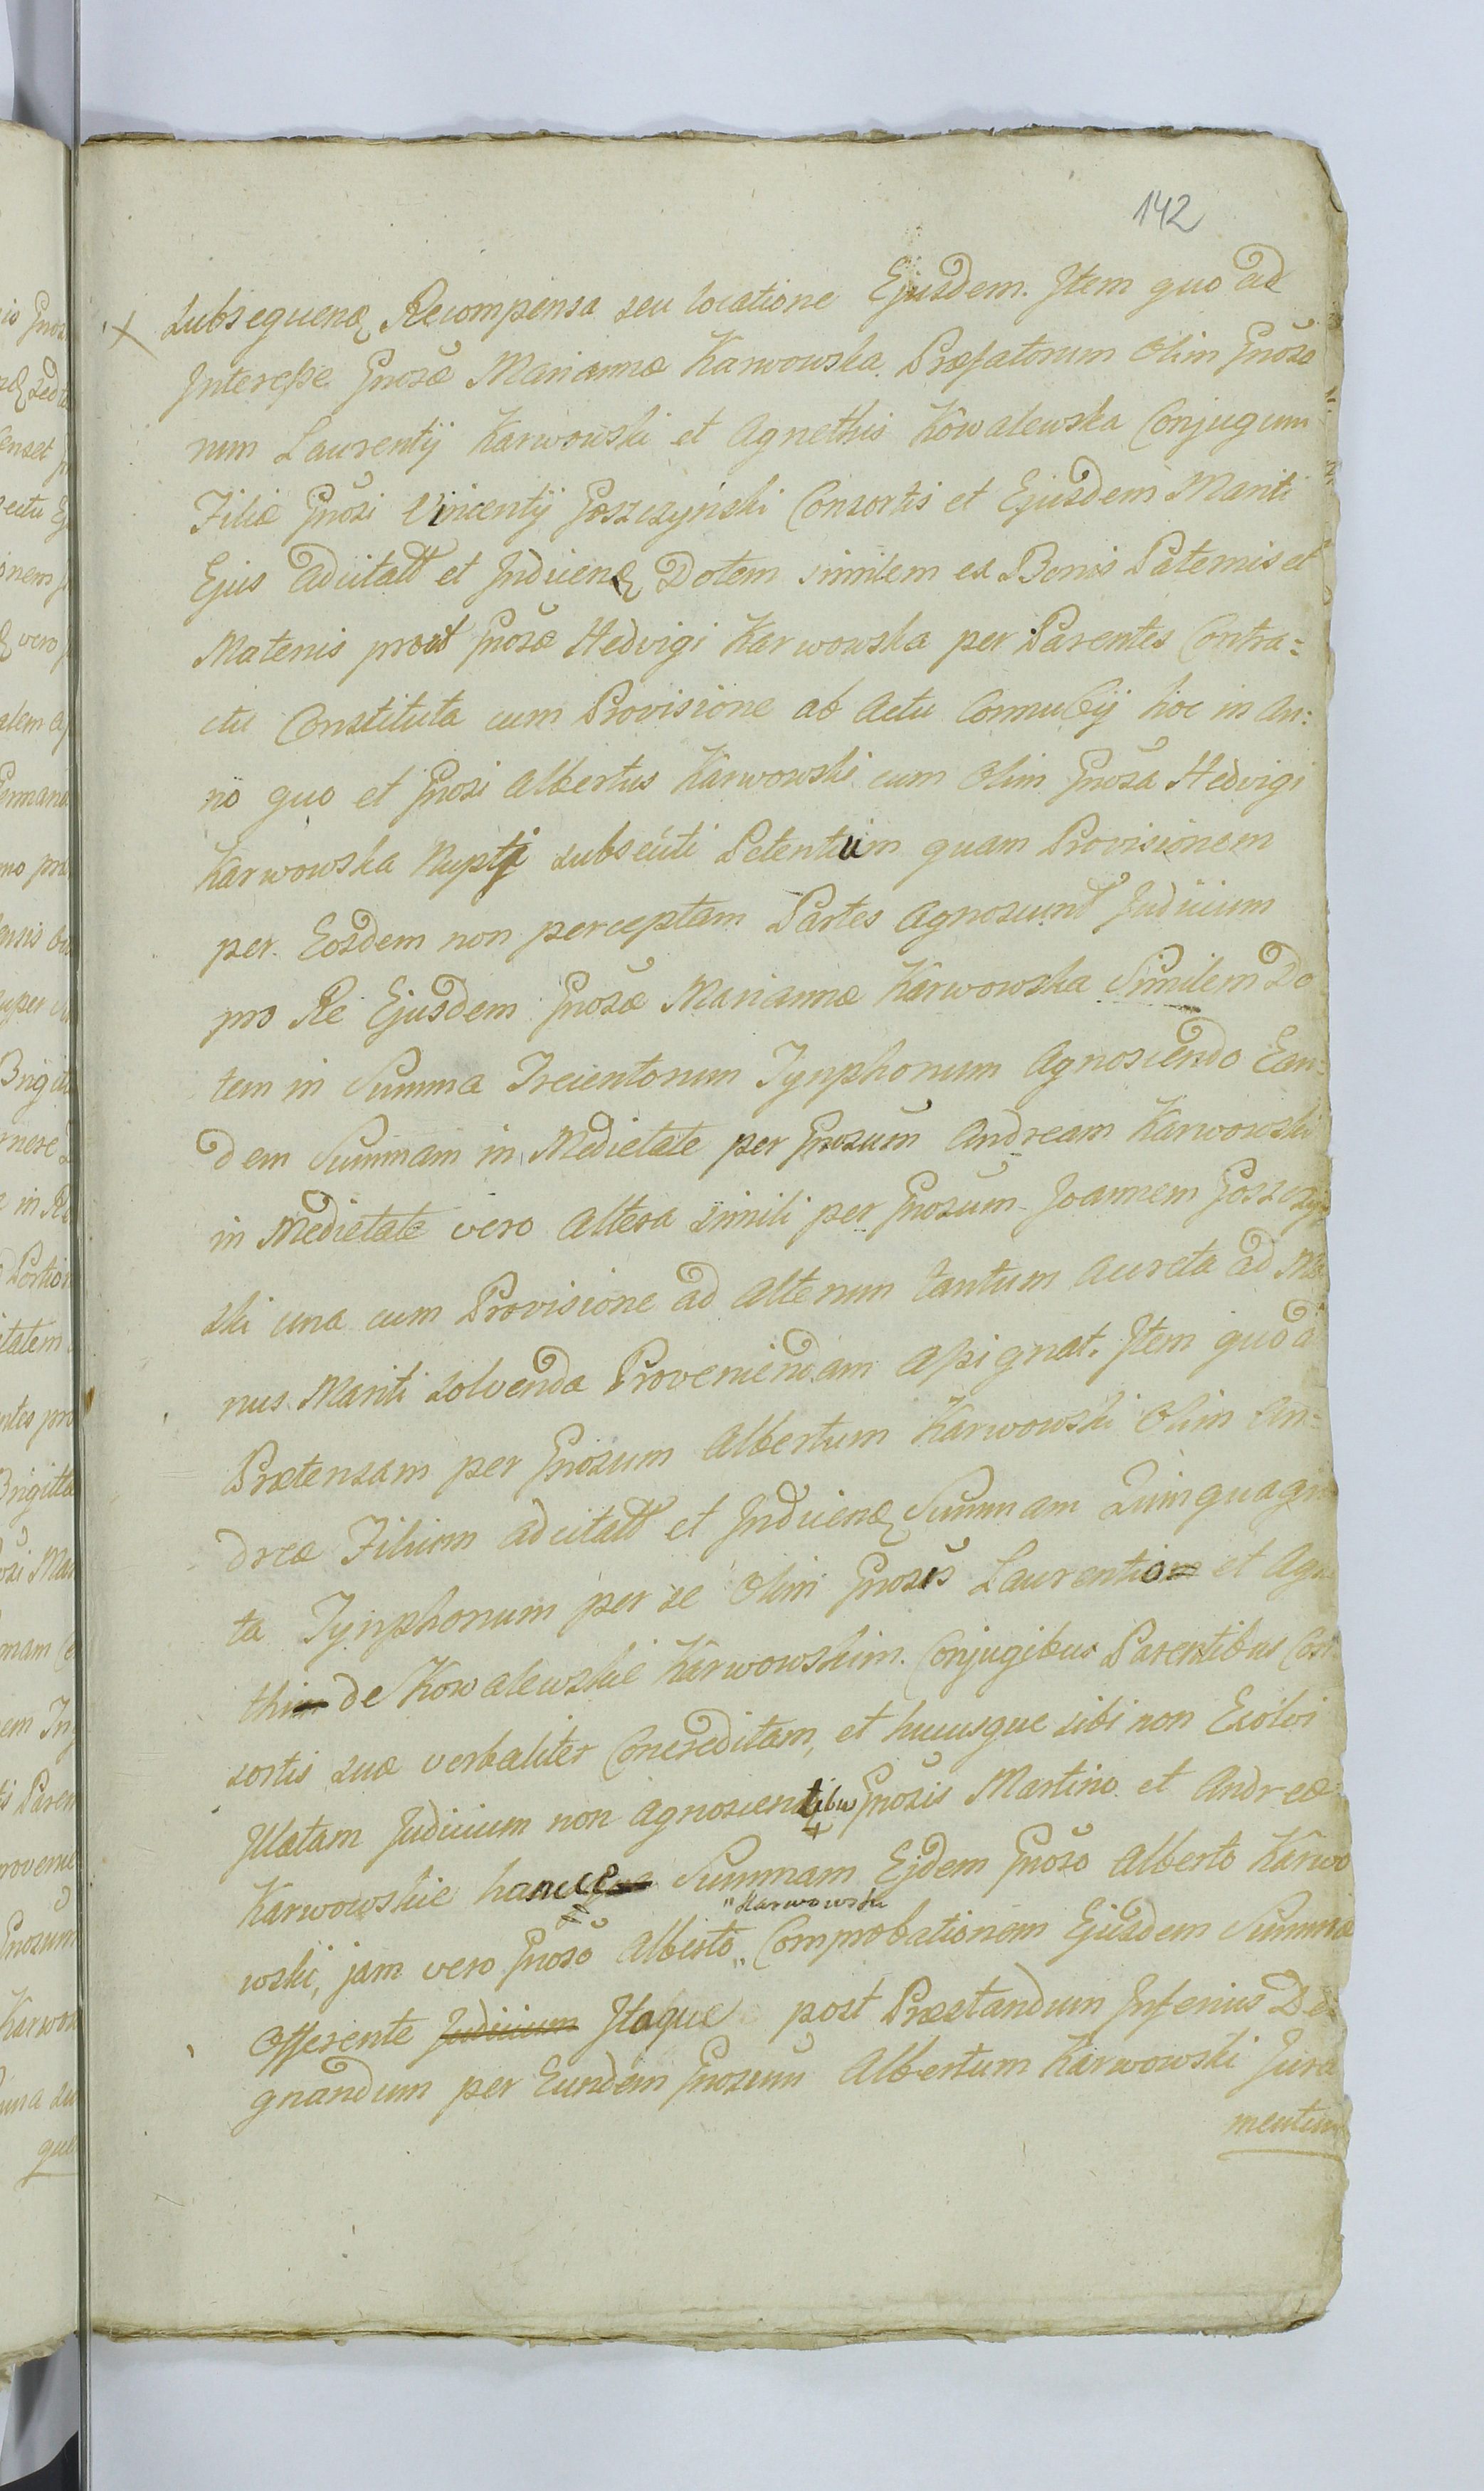 142
subsequend Recompensa seu locatione Ejusdem. Item quo ad
Interesse Gnosæ Mariannæ Karwowska Præfatorum Olim Gnoso
rum Laurentij Karwowski et Agnethis Kowalewska Conjugum
Filiæ Gnosi Vincentij Goszczyński Consortis et Ejusdem Mariti
Ejus adcitatt et Inducend Dotem similem ex Bonis Paternis et
Maternis prout Gnosæ Hedvigi Karwowska per Parentes Contra=
ctu Constituta cum Provisione ab Actu Connubij hoc in An:
no quo et Gnosi Albertus Karwowski cum Olim Gnosa Hedvigi
Karwowska Nuptj subsecuti Petentium quam Provisionem
per Eosdem non perceptam Partes Agnoscunt Judicium
pro Re Ejusdem Gnosæ Mariannæ Karwowska Similem Do
tem in Summa Trecentorum Tynphonum Agnoscendo Ean=
dem Summam in Medietate per Gnosum Andream Karwowski
in Medietate vero altera simili per Gnosum Joannem Goszczyn
ski una cum Provisione ad alterum tantum aucta ad Ma
nus Mariti solvenda Proveniendam Assignat. Item quo a
Prætensam per Gnosum Albertum Karwowski Olim An=
dreæ Filium adcitatt et Inducend Summam Quinquagin
ta Tynphonum per se Olim Gnosis Laurentio et Agne
thi de Kowalewskie Karwowskim Conjugibus Parentibus Con
sortis suæ verbaliter Concreditam, et hucusque sibi non Exolvi
Illatam Judicium non agnoscentibus Gnosis Martino et Andrea
Karwowskie hancce Summam Ejdem Gnoso Alberto Karwo
"Karwowski
wski, jam vero Gnoso Alberto " Comprobationem Ejusdem Summæ
Offerente Judicium Itaque post Præstandum Inferius De
gnandum per Eundem Gnosum Albertum Karwowski Jura
mentum